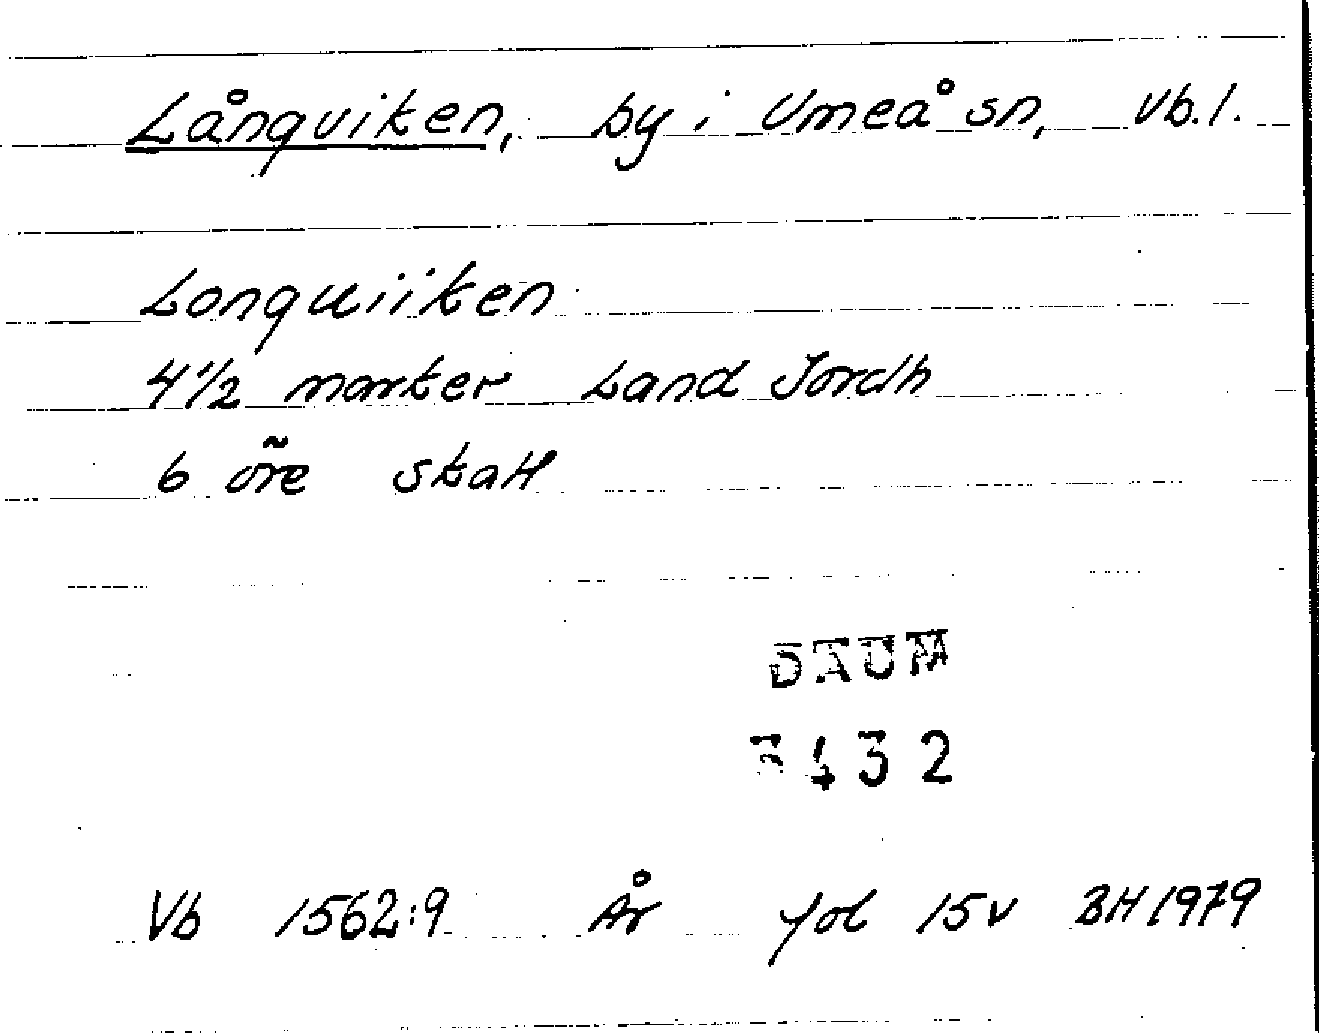 Långviken, by i Umeå sn, Vb.l.
Longuiiken
4 1/2 marker Land Jordh
6 öre skatt
DAUM
3432
Vb 1562:9 År fol 15v BH 1979